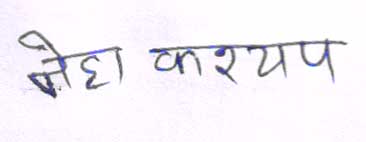 नेहा कश्यप